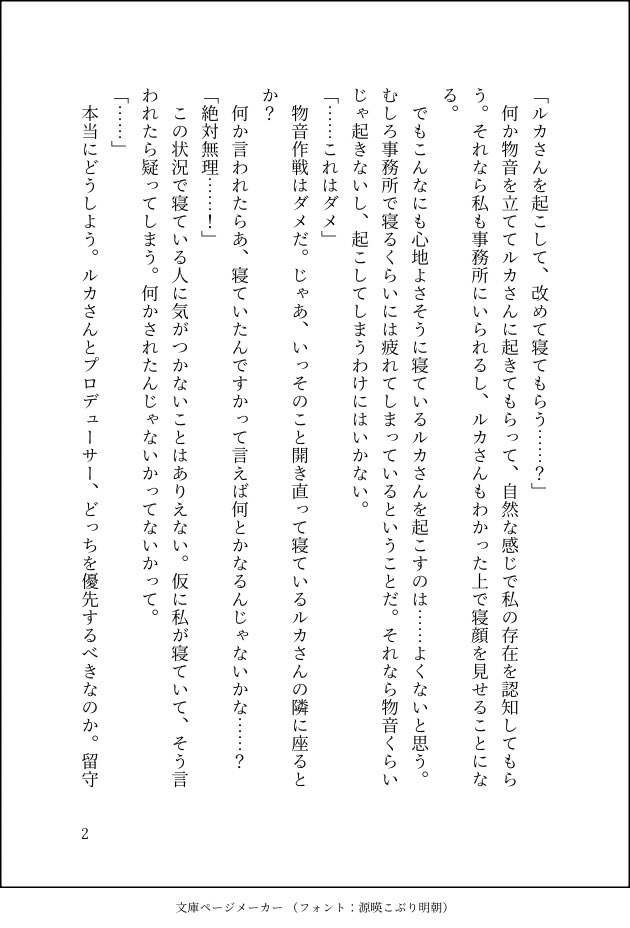 「ルカさんを起こして、改めて寝てもらう……？」
　何か物音を立ててルカさんに起きてもらって、自然な感じで私の存在を認知してもら
う。それなら私も事務所にいられるし、ルカさんもわかった上で寝顔を見せることにな
る。
　でもこんなにも心地よさそうに寝ているルカさんを起こすのは……よくないと思う。
むしろ事務所で寝るくらいには疲れてしまっているということだ。それなら物音くらい
じゃ起きないし、起こしてしまうわけにはいかない。
「……これはダメ」
　物音作戦はダメだ。じゃあ、いっそのこと開き直って寝ているルカさんの隣に座ると
か？
　何か言われたらあ、寝ていたんですかって言えば何とかなるんじゃないかな……？
「絶対無理……！」
　この状況で寝ている人に気がつかないことはありえない。仮に私が寝ていて、そう言
われたら疑ってしまう。何かされたんじゃないかってないかって。
「……」
　本当にどうしよう。ルカさんとプロデューサー、どっちを優先するべきなのか。留守
2
文庫ページメーカー（フォント：源暎こぶり明朝）